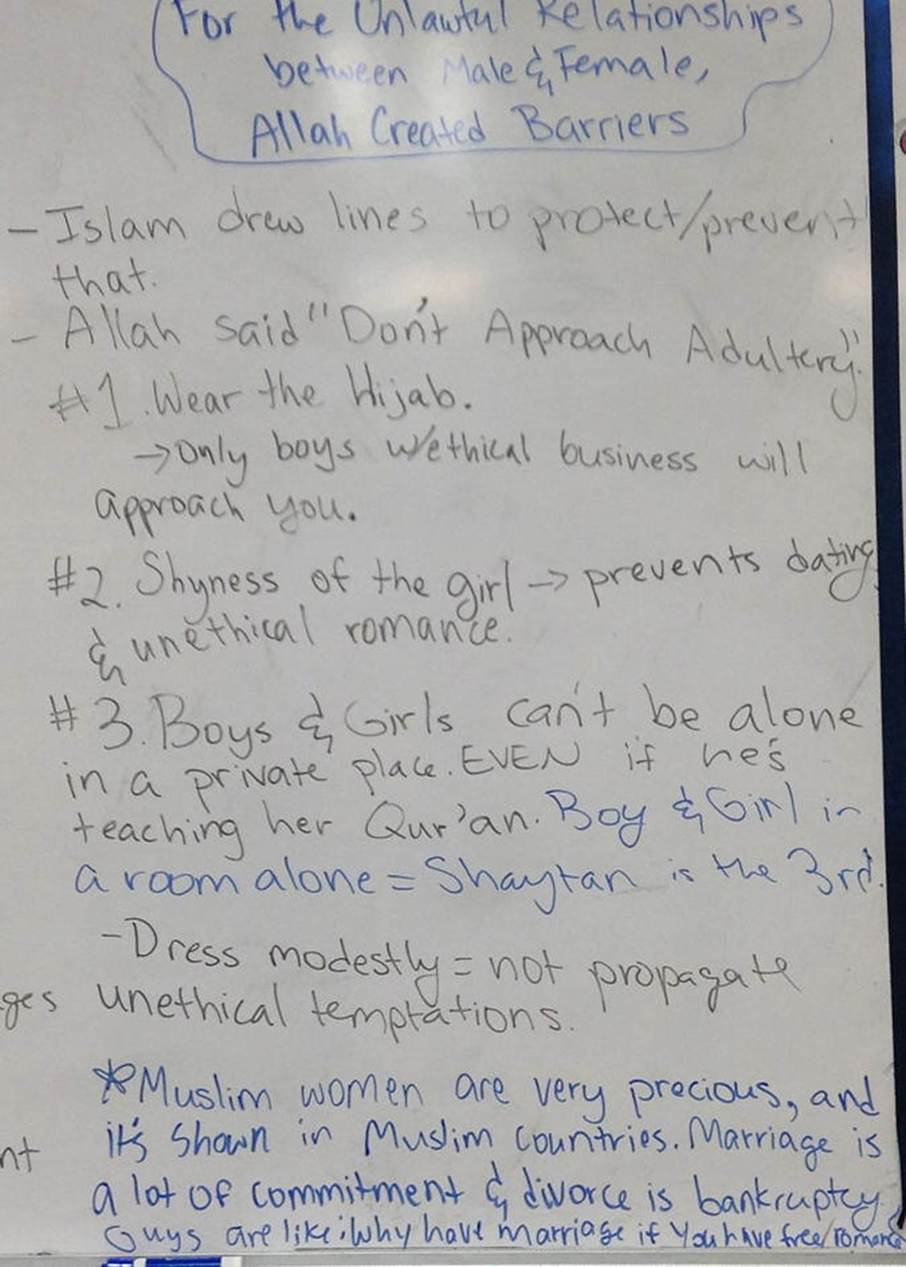 For the Unlawful Relationships
between Male & Female,
Allah Created Barriers
- Islam drew lines to protect/prevent
that.
- Allah said "Don't Approach Adultery."
#1. Wear the Hijab.
→ Only boys w/ethical business will
approach you.
#2. Shyness of the girl → prevents dating
& unethical romance.
#3. Boys & Girls can't be alone
in a private place. EVEN if he's
teaching her Qur'an. Boy & Girl in
a room alone = Shaytan is the 3rd.
- Dress modestly = not propagate
ges unethical temptations.
*Muslim women are very precious, and
nt it's shown in Muslim countries. Marriage is
a lot of commitment & divorce is bankruptcy.
Guys are like: Why have marriage if you have free/romance